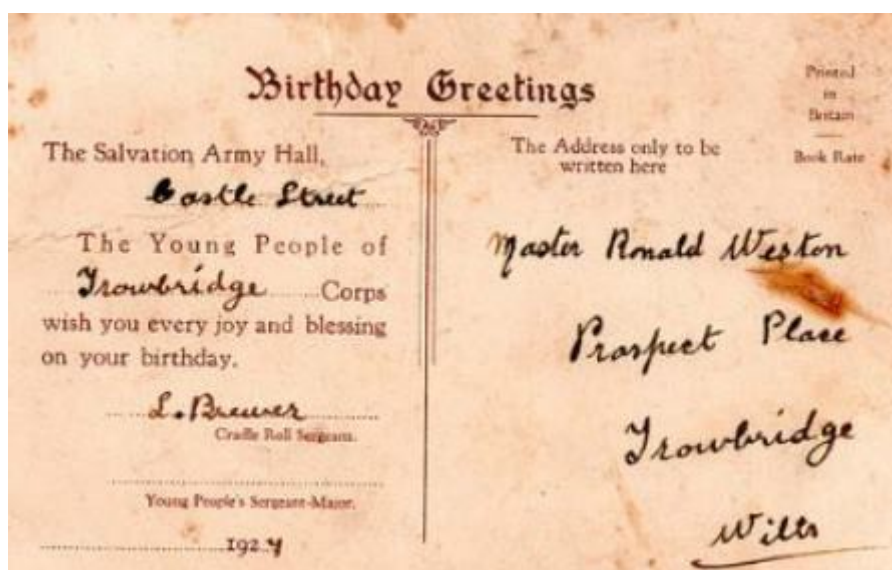 Birthday Greetings
The Salvation Army Hall,
Castle Street
The Young People of
Trowbridge Corps
wish you every joy and blessing
on your birthday.
L. Brewer
Cradle Roll Sergeant.
Young People's Sergeant-Major.
1924
The Address only to be
written here
Printed
in
Britain
Book Rate
Master Ronald Weston
Prospect Place
Trowbridge
Wilts